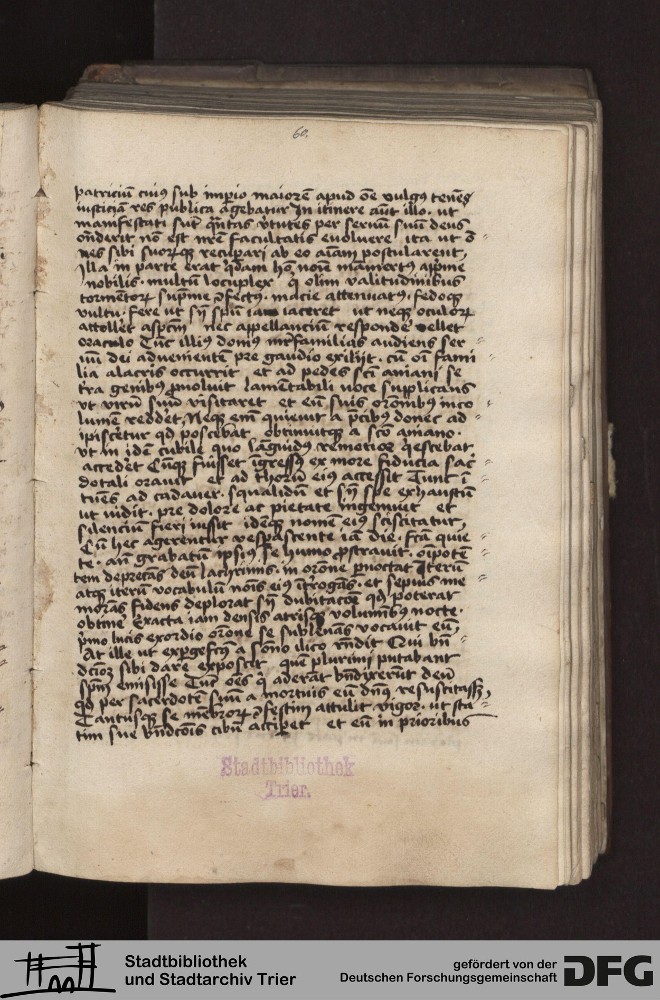 60.
patriciū cuiꝰ sub imperio maiorē apud oē vulgꝰ tenēs
iusticiā res publica agebatur In itinere aūt illo. ut
manifestati sūt q̄ntas v̄tutes per seruū suū deus
on̄derit nō est nr̄e facultatis euoluere ita ut
nes sibi suorūq recup̄ari ab eo aīam postularent,
Illa in parte erat q̄dam hō noīe mamertꝰ app̄me
nobilis. multū locuplex q̄ olim valitudinibus
tormentoꝝ sup̄me ꝯfectꝰ. macie attenuatꝰ, fedoqꝫ
vultu. fere ut sn̄ spū iam iaceret ut neqꝫ oculoꝝ
attollēt aspectū nec appellanciū respondē vellet
oraculo Tūc illiꝰ domꝰ mr̄familias audiens ser
uū dei aduenientē pre gaudio exiliit. cū oī fami
lia alacris occurrit et ad pedes scī amani se
tra genibꝰ ꝓuoluit lamētabili uoce supplicans
ut virū suū visitaret et eū suis oronibꝰ inco
lumē reddet, Neqꝫ em̄ quieuit a p̄cibus donec ad
ipiscetur qd̄ poscebat obtinuitqꝫ a scō amano.
ut in idē cubile quo lāguidꝰ remotiore q̄escebat
accedēt Cūqꝫ fuisset īgressꝰ ex more fiducia sac
dotali orauit et ad thorū eiꝰ accessit Tunc ī
tuēs ad cadauer. squalidū et sn̄ spe exhaustū
ut vidit. pre dolore ac pietate ingemuit et
silenciū fieri iussit idēqꝫ nomē eiꝰ sciscitatur,
Cū hec agerentur vesp̄ascente iā die. fcā quie
te. an̄ grabatū ipsiꝰ se humo ꝓstrauit. oīpotē
tem deprecās deū lachrimis. in orone p̄noctat Iterū
atqꝫ iterū vocabulū noīs eiꝰ īterogās. et sepius me
morās fidens deplorat sn̄ dubitacōe qd̄ poterat
obtinē Exacta iam densis atrisqꝫ voluminibꝰ nocte.
p̄mo lucis exordio orone se subleuās vocauit eū,
At ille ut expergefcꝰ a sōno ilico rn̄dit Qui bn̄
dccōꝫ sibi dare exposcit quē plurimi putabant
spm̄ emisisse Tūc oēs q̄ aderāt bn̄dixerūt deū
qd̄ per sacerdotē suū a mortuis eū dn̄ꝰ resuscitassꝫ,
Tantusqꝫ se mēbroꝝ ꝯfestim attulit vigor. ut sta
tim sue bn̄dcōis cibū accip̄et et eū in prioribus
Stadtbibliothek
Trier.
Stadtbibliothek
und Stadtarchiv Trier
gefördert von der
Deutschen Forschungsgemeinschaft
DFG